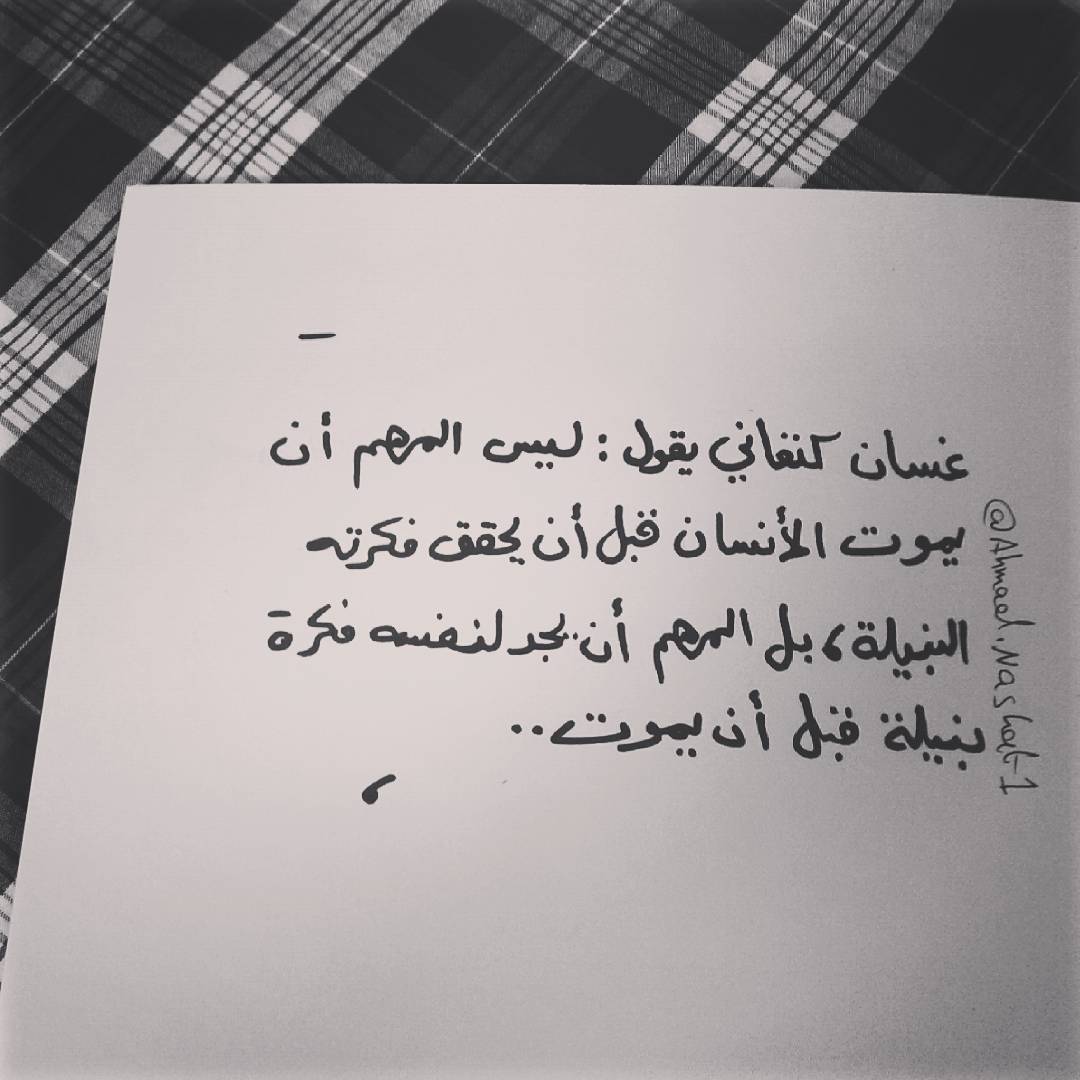 غسان كنفاني يقول : ليس المهم أن
يموت الأنسان قبل أن يحقق فكرته
النبيلة، بل المهم أن يجد لنفسه فكرة
نبيلة قبل أن يموت..
@Ahmed.Nashat-1